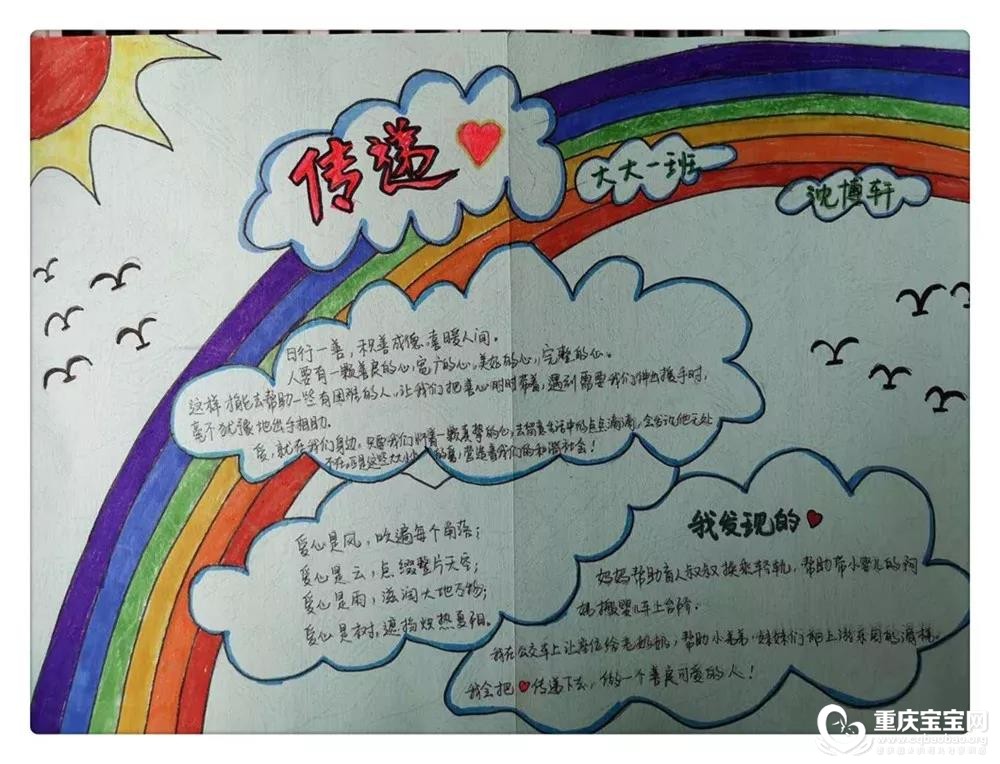 传递❤
大大一班
沈博轩
日行一善，积善成德，喜暖人间。
人要有一颗善良的心，宽广的心，美好的心，完整的心。
这样才能去帮助一些有困难的人，让我们把善心时时带着，遇到需要我们伸出援手时，
毫不犹豫地出手相助。
爱，就在我们身边。只要我们怀着一颗真挚的心，去留意生活中的点点滴滴，会发现他无处
不在，正是这些大大小小的爱，营造着我们的和谐社会！
爱心是风，吹遍每个角落；
爱心是云，点缀整片天空；
爱心是雨，滋润大地万物；
爱心是树，遮挡炽热夏阳。
我发现的❤
妈妈帮助盲人叔叔换乘轻轨，帮助带小婴儿的阿
姨搬婴儿车上台阶。
我在公交车上让座位给老奶奶，帮助小弟弟、妹妹们爬上游乐园的滑梯。
我会把❤传递下去，做一个善良可爱的人！
重庆宝宝网
www.cqbaobao.org